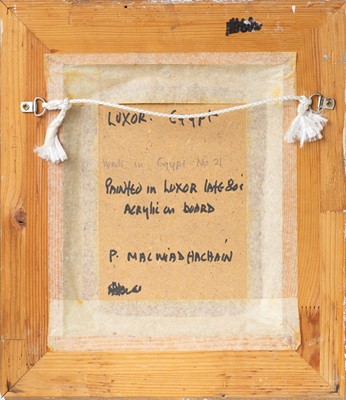 LUXOR. EGYPT
Work in Egypt No 21
PAINTED IN LUXOR LATE 80s
ACRYLIC ON BOARD
P. MACMIADHACHAIN